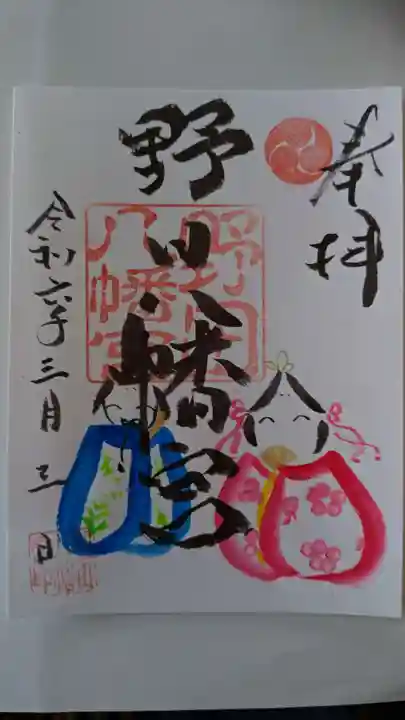 奉拝
野田八幡宮
野田
八幡宮
令和六年三月三日